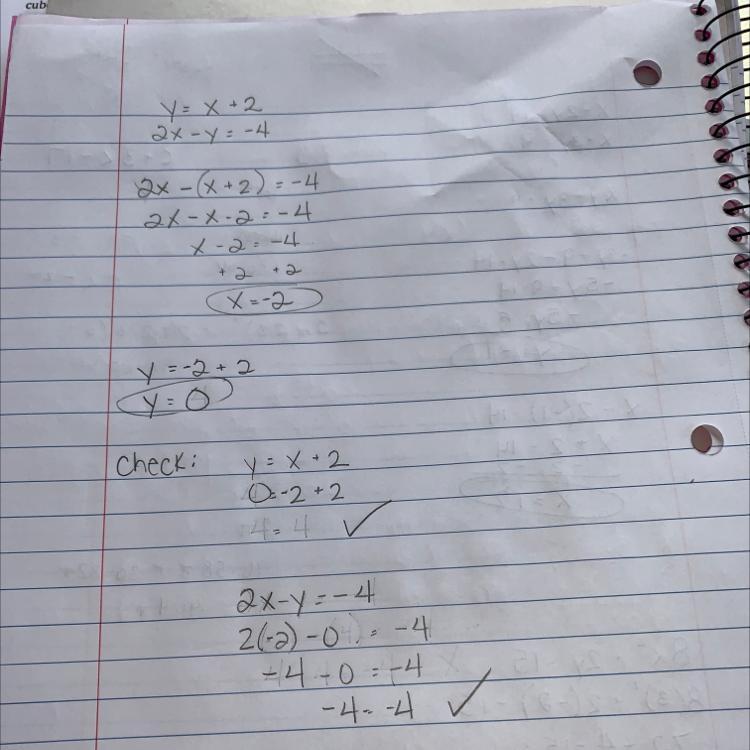 cub
y = x + 2
2x - y = -4
2x - (x + 2) = -4
2x - x - 2 = -4
x - 2 = -4
+ 2 + 2
x = -2
y = -2 + 2
y = 0
Check: y = x + 2
0 = -2 + 2
4 = 4 ✓
2x - y = -4
2(-2) - 0 = -4
-4 - 0 = -4
-4 = -4 ✓